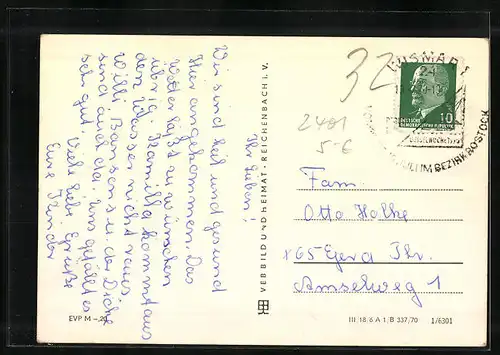 Ihr Lieben!
Wir sind heil und gesund
hier angekommen. Das
Wetter läßt zu wünschen
übrig. Kamilla kommt aus
dem Wasser nicht raus.
Willi u. der Dicke
sind auch da. Uns gefällt es
sehr gut. Viele liebe Grüße
Eure Kinder
VEB BILD UND HEIMAT · REICHENBACH i. V.
EVP M –,20
WISMAR 1
24
DEUTSCHE
DEMOKRATISCHE REPUBLIK
10
IM BEZIRK ROSTOCK
32
2401
5-6
Fam.
Otto Holke
X 65 Gera Thr.
Amselweg 1
III 18/6 A 1/B 337/70 1/6301